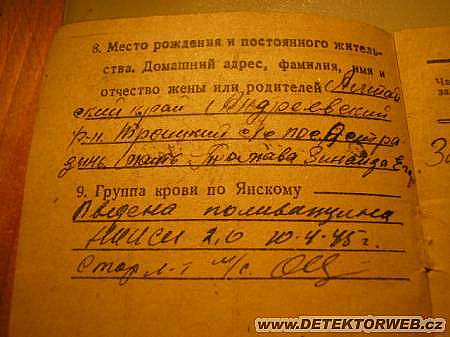 8. Место рождения и постоянного житель-
ства. Домашний адрес, фамилия, имя и
отчество жены или родителей Алтай
ский край Андреевский
р-н Троицкий с/с пос
мать Зинаида
9. Группа крови по Янскому
введена поливакцина
НИИСИ 2,0 10-4-45 г.
Стар л-т м/с
За
WWW.DETEKTORWEB.CZ